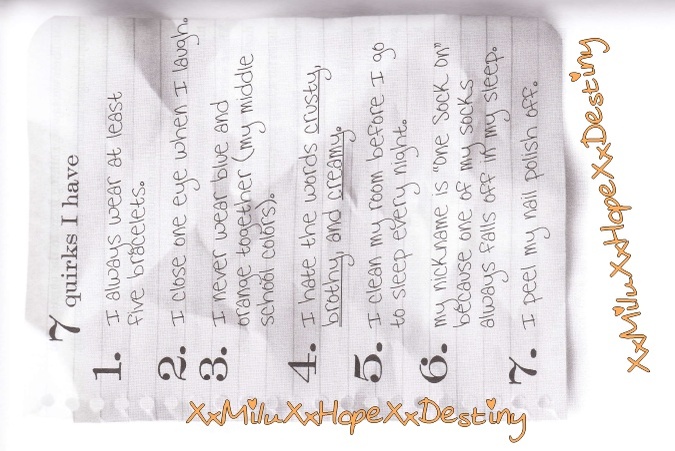 7 quirks I have
1. I always wear at least
five bracelets.
2. I close one eye when I laugh.
3. I never wear blue and
orange together (my middle
school colors).
4. I hate the words crusty,
brothy, and creamy.
5. I clean my room before I go
to sleep every night.
6. my nickname is "one sock on"
because one of my socks
always falls off in my sleep.
7. I peel my nail polish off.
XxMiluXxHopeXxDestiny
XxMiluXxHopeXxDestiny